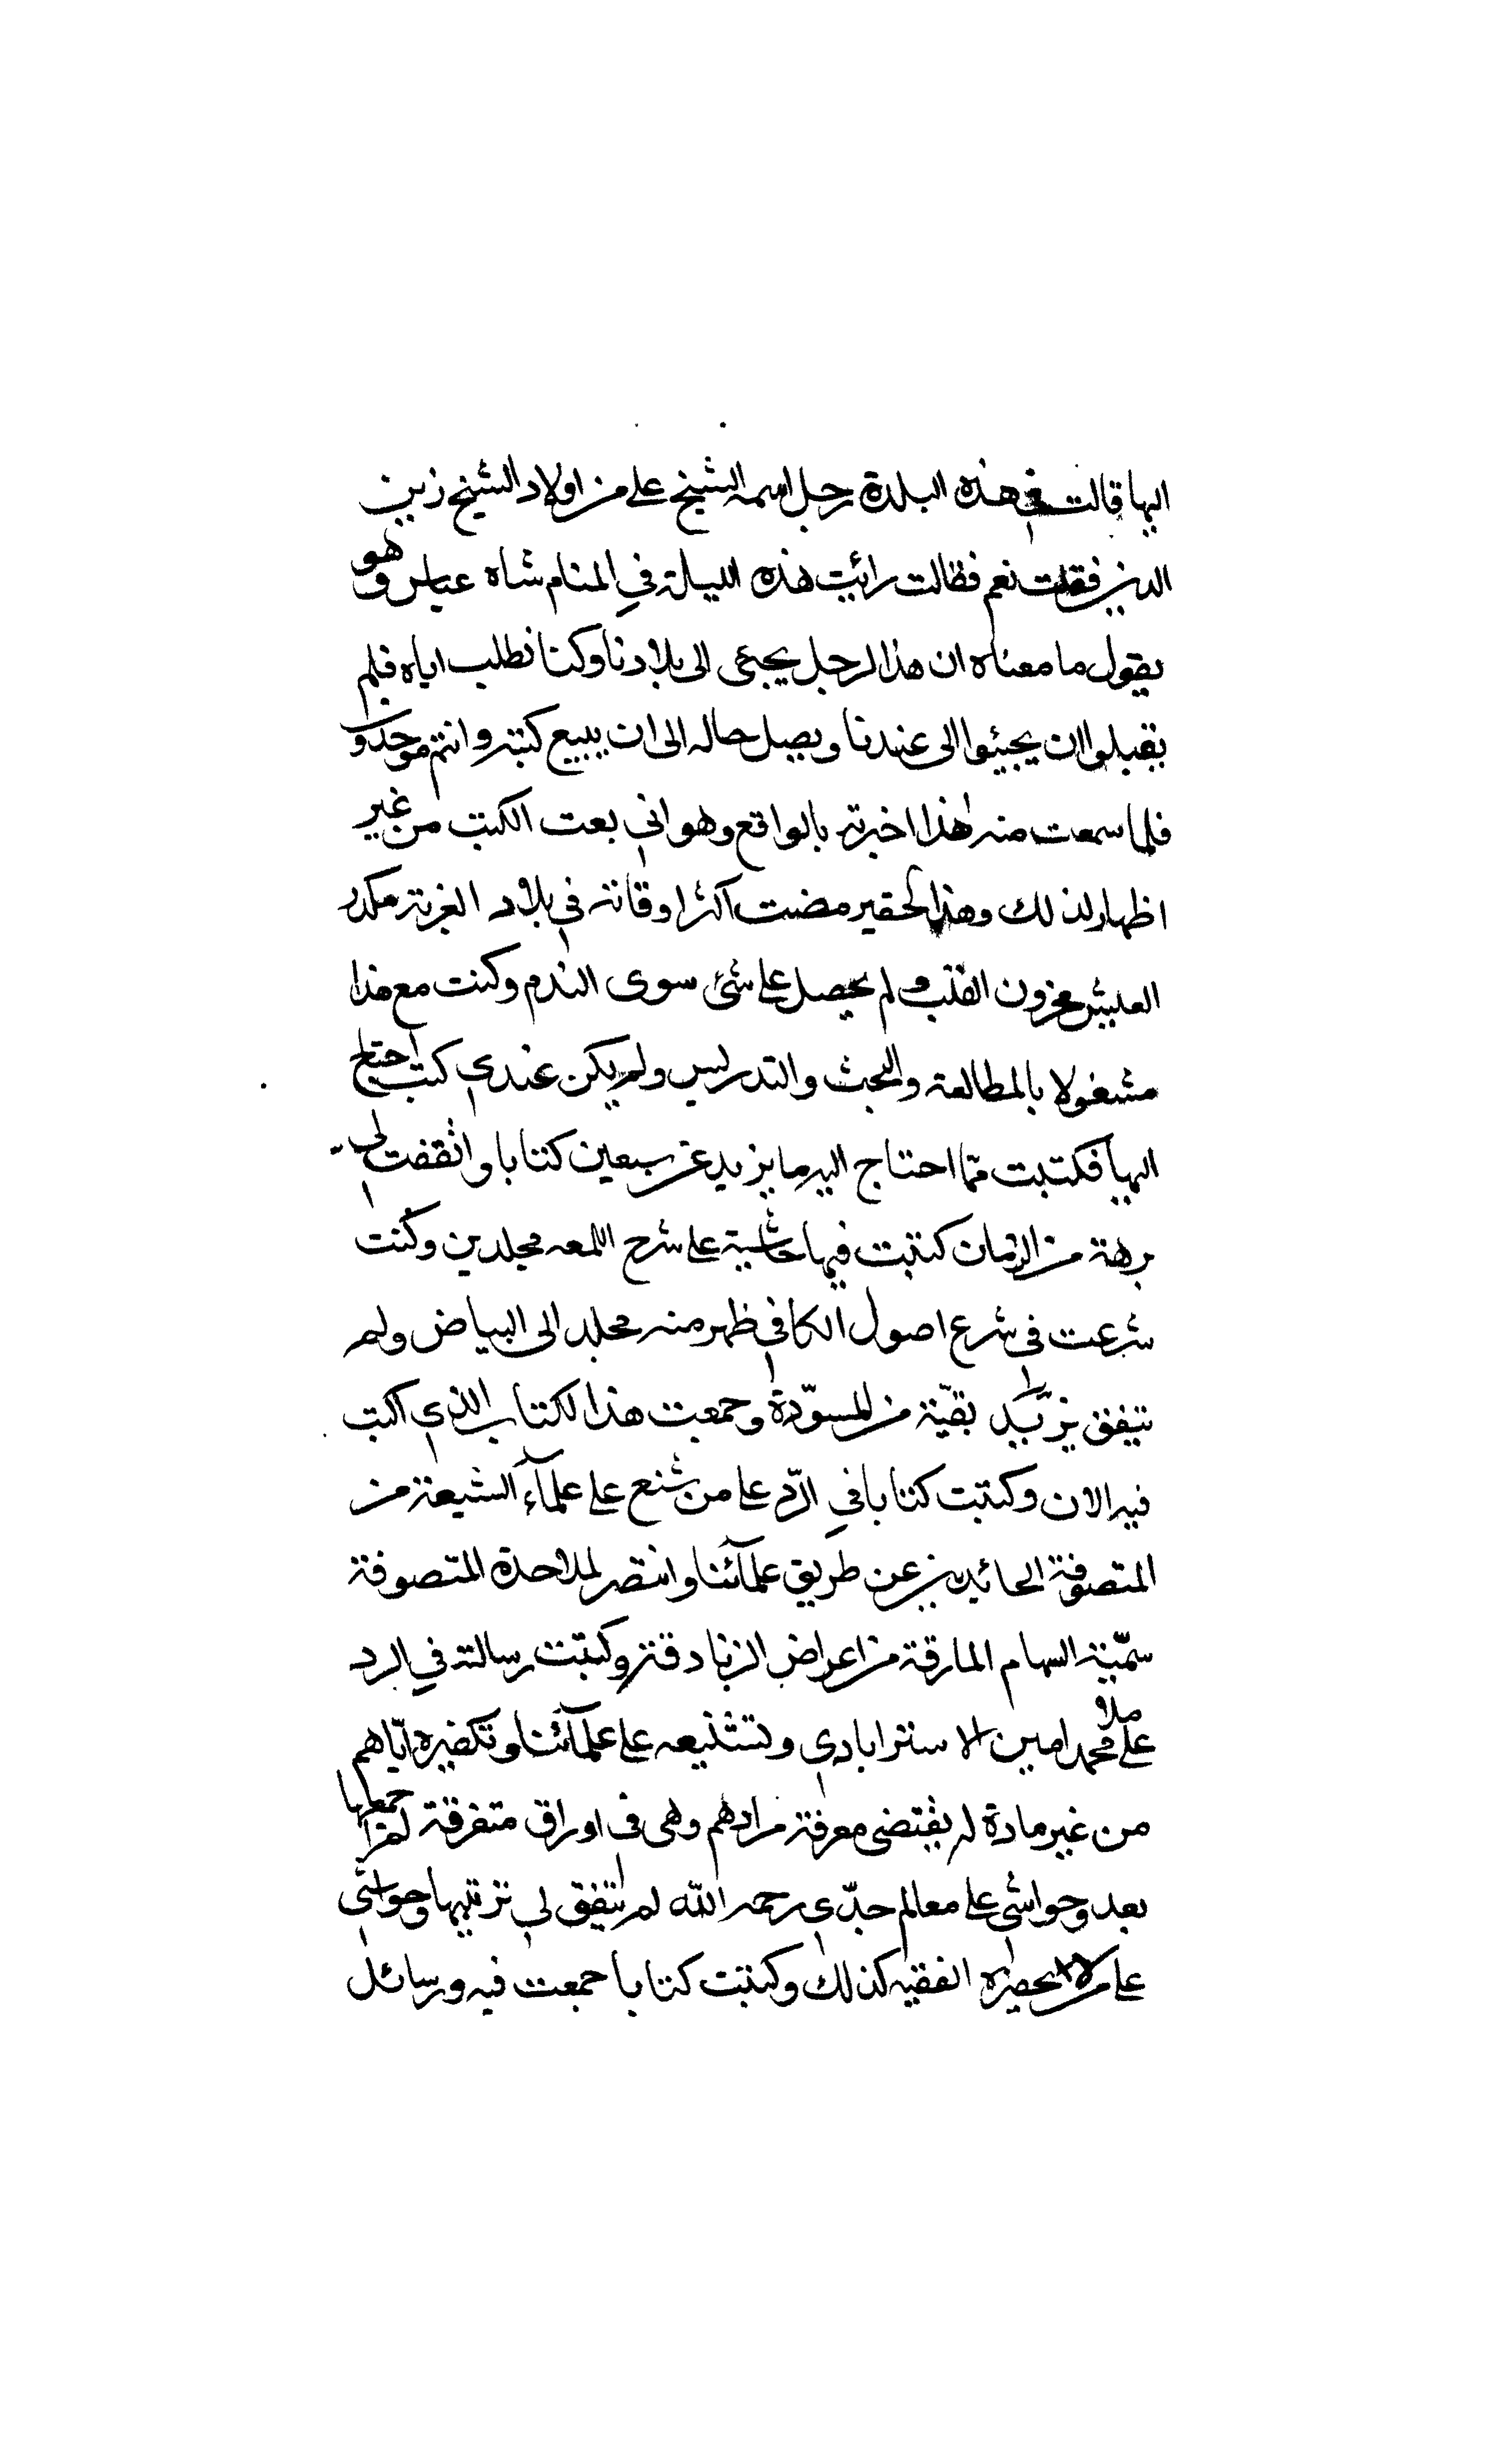 اليها قالت في هذه البلدة رجل اسمه الشيخ علي من اولاد الشيخ زين
الدين فقلت نعم فقالت رائيت هذه الليلة في المنام شاه عباس وهو
يقول ما معناه ان هذا الرجل يجيئ الى بلادنا وكنا نطلب اباه فلم
يقبلوا ان يجيئوا الى عندنا ويصل حاله الى ان يبيع كتبه وانتم موجود
فلما سمعت منه هذا اخبرته بالواقع وهو اني بعت الكتب من غير
اظهار لذلك وهذا الحقير مضت اكثر اوقاته في بلاد الغربة مكدر
العيش محزون القلب ولم يحصل على شئ سوى الندم وكنت مع هذا
مشغولا بالمطالعة والبحث والتدريس ولم يكن عندي كتب احتاج
اليها فكتبت مما احتاج اليه ما يزيد عن سبعين كتابا واتفقت لي
برهة من الزمان كتبت فيها حاشية على شرح اللمعه مجلدين وكنت
شرعت في شرع اصول الكافي ظهر منه مجلد الى البياض ولم
يتفق لي تبييد بقيّة من المسوّدة وجمعت هذا الكتاب الذي اكتب
فيه الان وكتبت كتابا في الرّد على من شنع على علمآء الشيعة من
المتصوفة الحائدين عن طريق علمآئنا وانتصر لملاحدة المتصوفة
سمّيته السهام المارقة من اعراض الزنادقة وكتبت رسالة في الرد
على ملا محمد امين الاسترابادي وتشنيعه على علمآئنا وتكفيره ايّاهم
من غير مادة له يقتضى معرفة مرادهم وهى في اوراق متفرقة لم اجمعها
بعد وحواشي على معالم جدّي رحمه الله لم يتفق لي ترتيبها وحواشي
على من لا يحضره الفقيه كذلك وكتبت كتابا جمعت فيه ورسائل